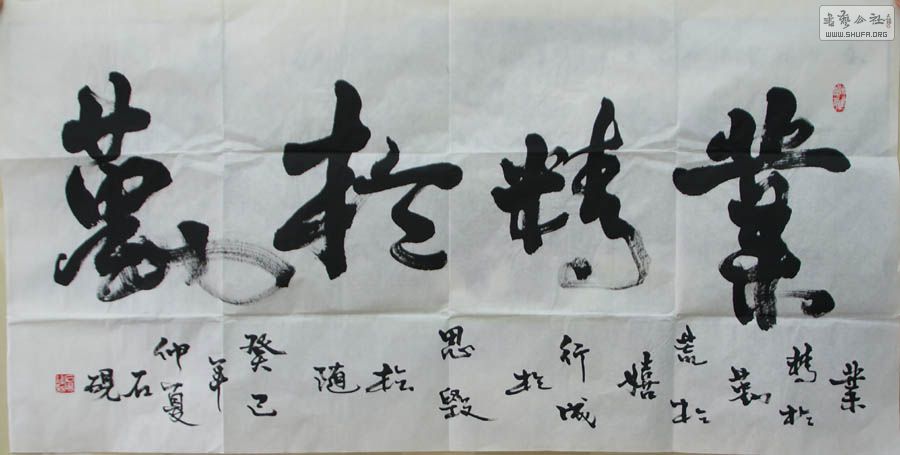 業精於勤
業
精於
勤
荒於
嬉
行成
於
思毀
於
随
癸巳
年
仲夏
石
硯
書藝公社
WWW.SHUFA.ORG